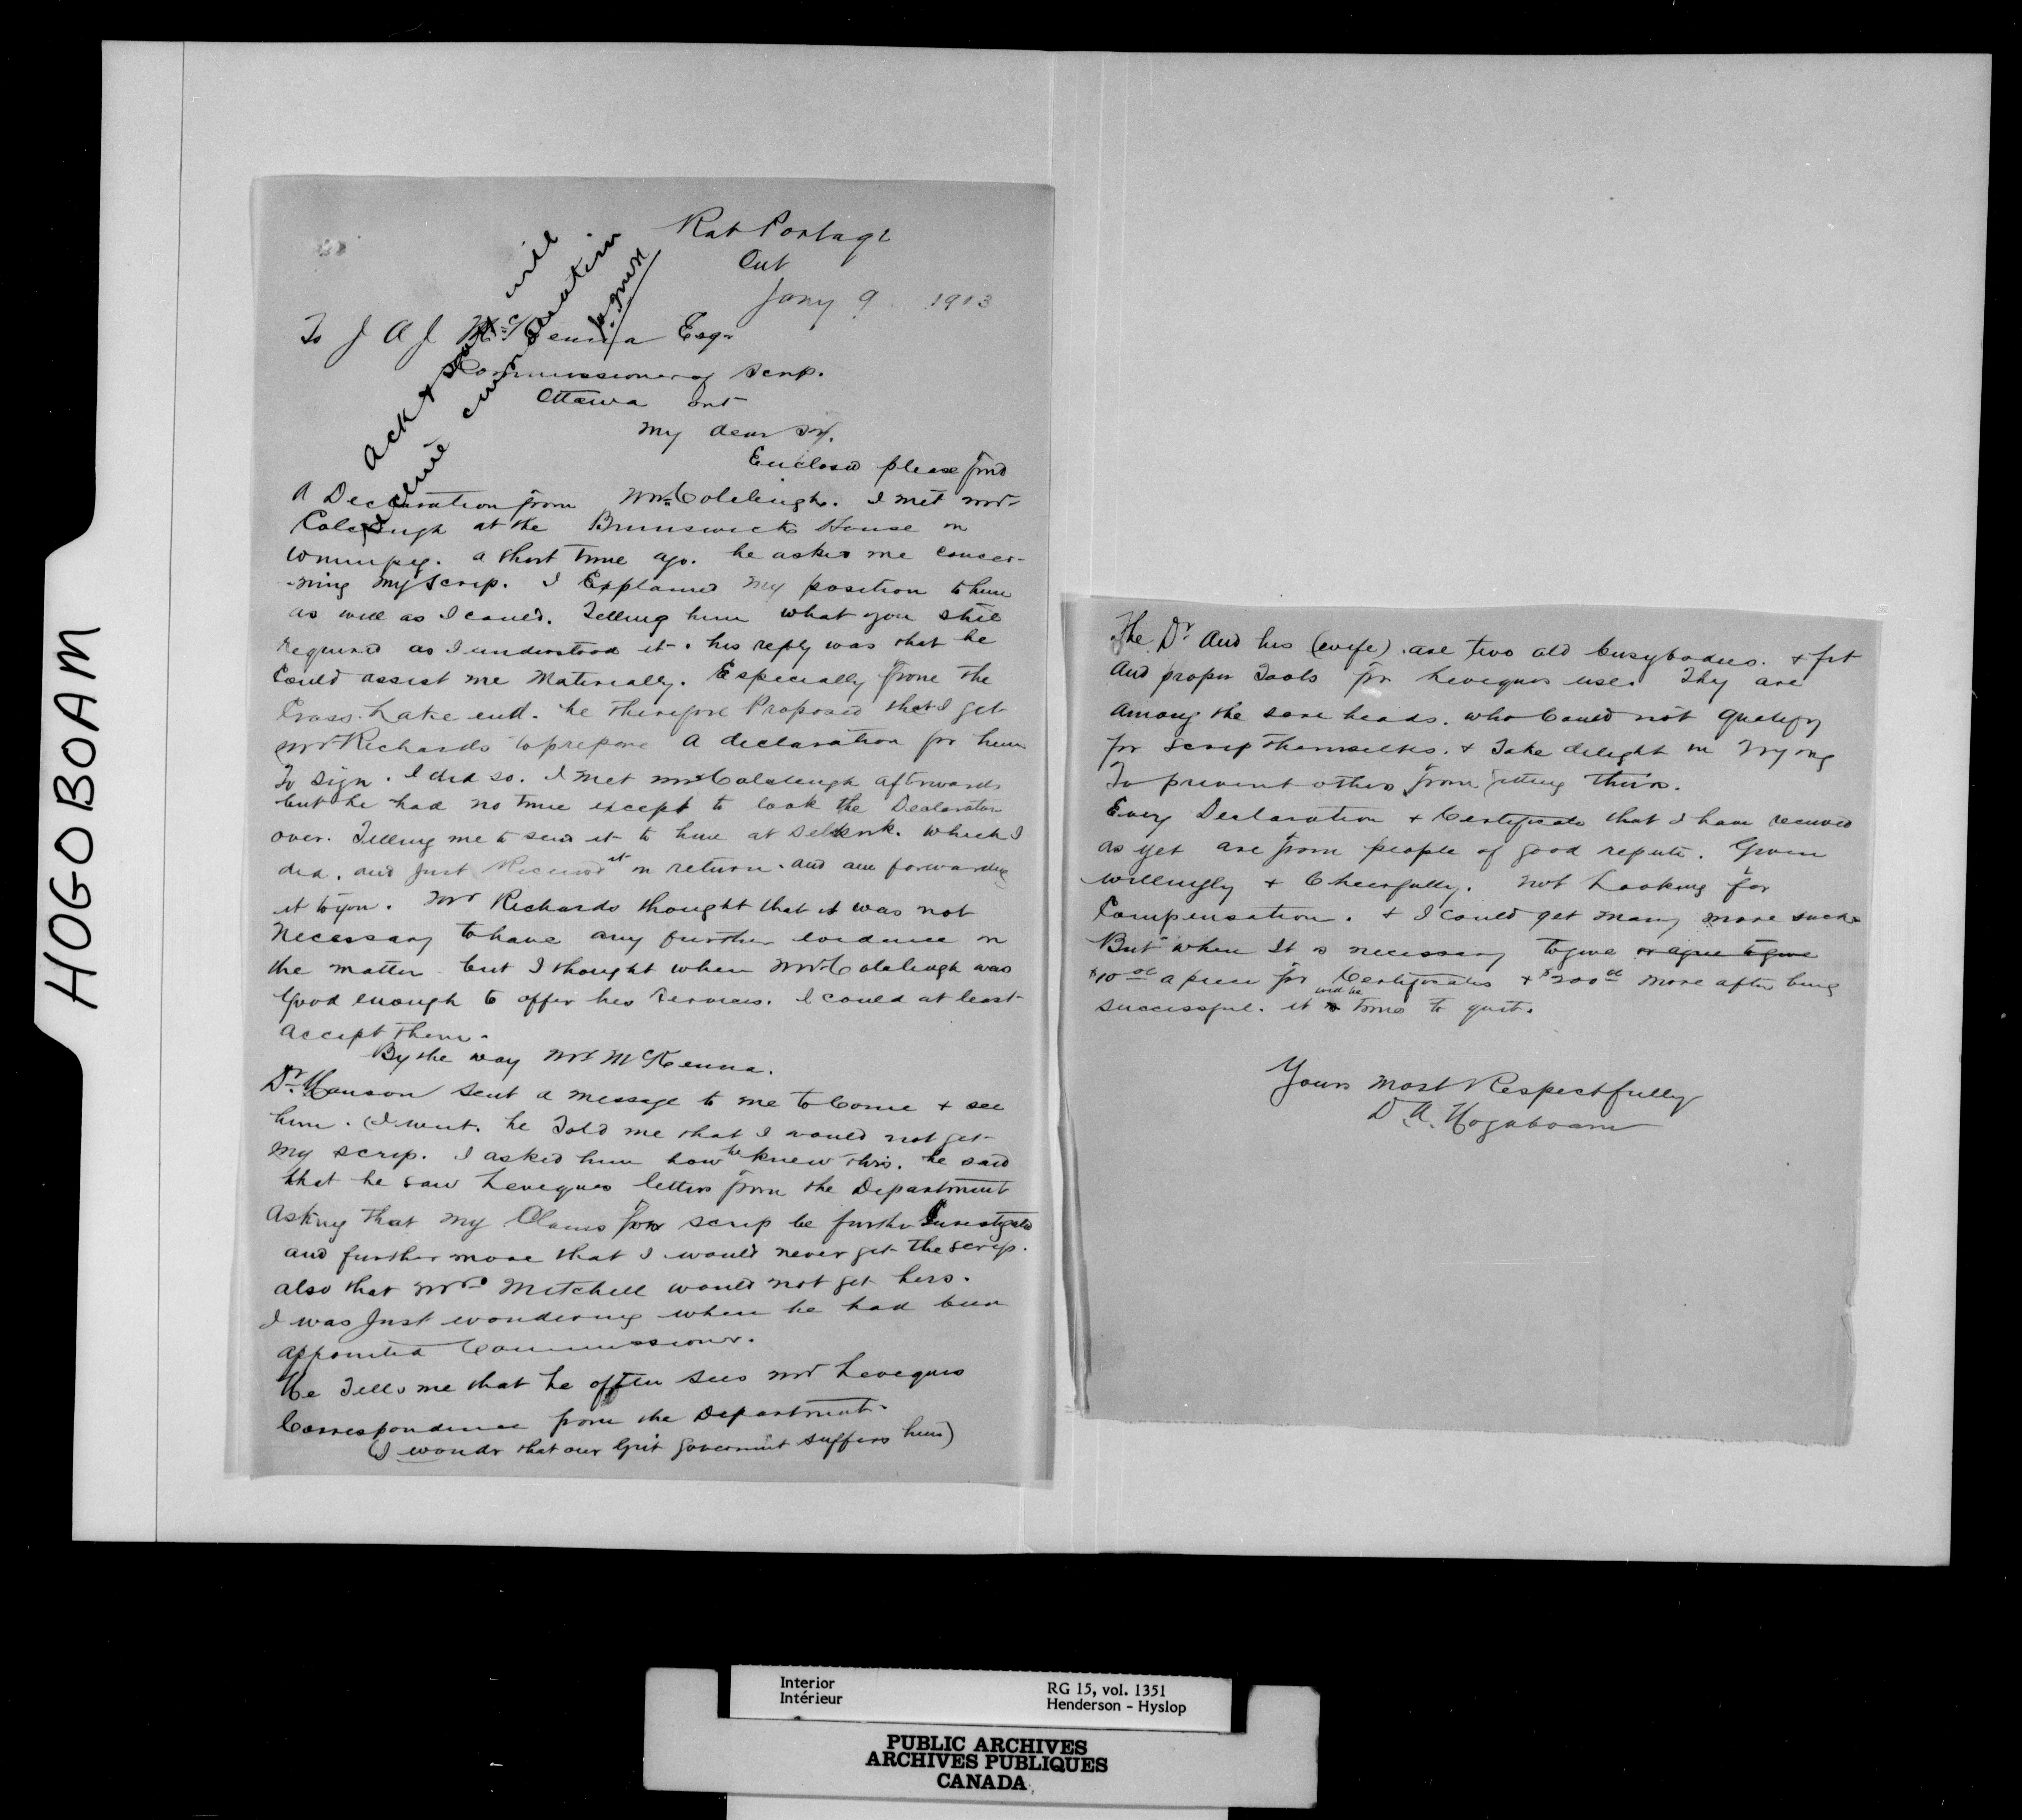 HOGOBOAM
Rat Portage
Ont
Jany 9 1903
To J A J McKenna Esqr
Commissioner of Scrip.
Ottawa Ont
My dear Sir.
Ack & say will
receive consideration
Enclosed please find
A Declaration from Mr Colcleugh. I met Mr
Colcleugh at the Brunswick House in
Winnipeg. a short time ago. he asked me concer-
-ning my scrip. I Explained my position to him
as well as I could. Telling him what you still
required as I understood it. his reply was that he
Could assist me Materially. Especially from the
Cross Lake end. he therefore Proposed that I get
Mr Richards to prepare A declaration for him
To sign. I did so. I met Mr Colcleugh afterwards
but he had no time except to look the Declaration
over. Telling me to send it to him at Selkirk. which I
did, and Just Received it in return. and am forwarding
it to you. Mr Richards thought that it was not
Necessary to have any further evidence in
the matter. but I thought when Mr Colcleugh was
Good enough to offer his services. I could at least
accept them.
By the way Mr McKenna.
Dr. Hanson sent a message to me to Come & see
him. I went. he Told me that I would not get
my scrip. I asked him how he knew this. he said
that he saw Leveques letters from the Department
Asking that my Claims for scrip be further Investigated
and further more that I would never get the scrip.
also that Mrs Mitchell would not get hers.
I was Just wondering when he had been
appointed Commissioner.
He Tells me that he often sees Mr Leveques
Correspondence from the Department.
(I wonder that our Grit government suffers him)
The Dr. And his (wife). are two old busybodies. & fit
And proper Tools for Leveques use. They are
Among the sore heads. who Could not Qualify
for scrip themselves. & Take delight in Trying
To prevent others from getting theirs.
Every Declaration & Certificate that I have received
as yet are from people of good repute. Given
willingly & Cheerfully. Not Looking for
Compensation. & I could get many more such
But when It is necessary to give or agree to give
$10.00 a piece for Certificates & $200.00 more after being
successful. it will be time to quit.
Yours Most Respectfully
D. A. Hogaboam
Interior
Intérieur
RG 15, vol. 1351
Henderson - Hyslop
PUBLIC ARCHIVES
ARCHIVES PUBLIQUES
CANADA